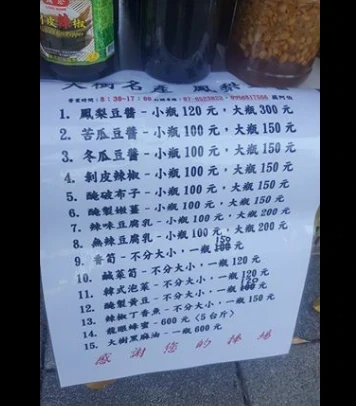 剝皮辣椒
大樹名產 鳳梨
營業時間：8：30-17：00
1. 鳳梨豆醬－小瓶120元，大瓶300元
2. 苦瓜豆醬－小瓶100元，大瓶150元
3. 冬瓜豆醬－小瓶100元，大瓶150元
4. 剝皮辣椒－小瓶100元，大瓶150元
5. 醃破布子－小瓶100元，大瓶150元
6. 醃製嫩薑－小瓶100元，大瓶150元
7. 辣味豆腐乳－小瓶100元，大瓶200元
8. 無辣豆腐乳－小瓶100元，大瓶200元
9. 香筍－不分大小，一瓶150元
10. 鹹菜筍－不分大小，一瓶120元
11. 韓式泡菜－不分大小，一瓶120元
12. 醃製黃豆－不分大小，一瓶150元
13. 辣椒丁香魚－不分大小，一瓶150元
14. 龍眼蜂蜜－600元〈5台斤〉
15. 大樹黑麻油－一瓶600元
感謝您的捧場